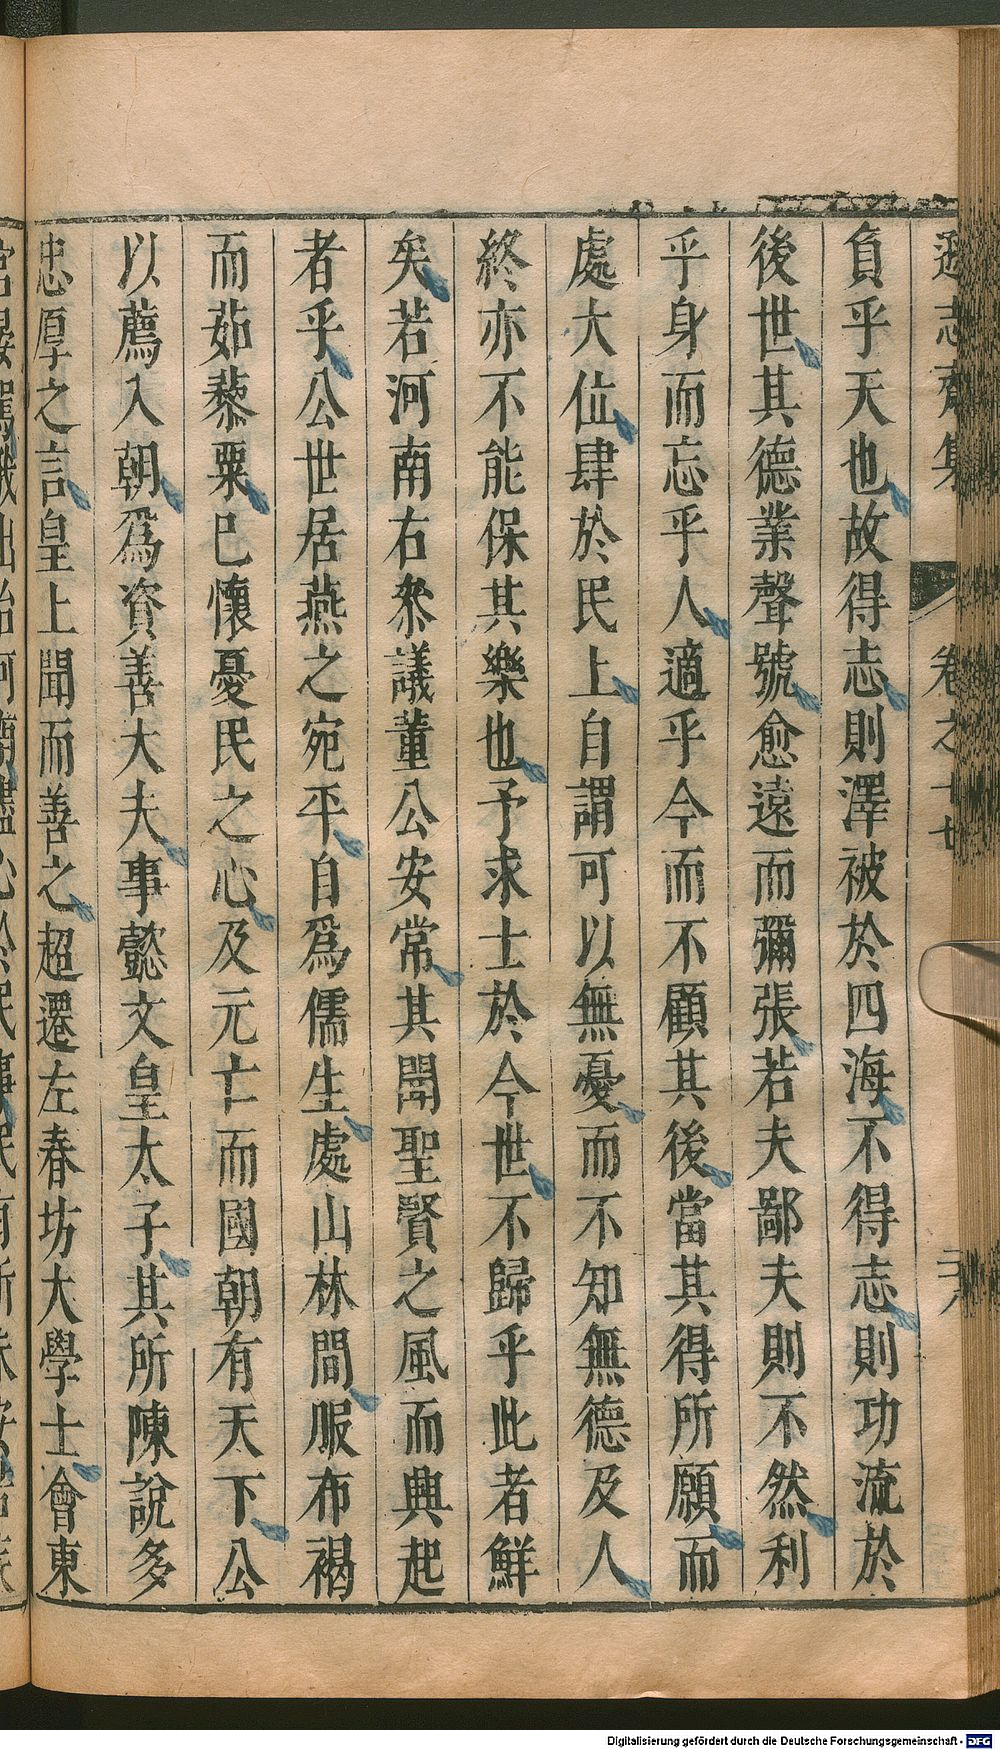 遜志齋集 卷之十七 二八
負乎天也故得志則澤被於四海不得志則功流於
後世其德業聲號愈遠而彌張若夫鄙夫則不然利
乎身而忘乎人適乎今而不顧其後當其得所願而
處大位肆於民上自謂可以無憂而不知無德及人
終亦不能保其樂也予求士於今世不歸乎此者鮮
矣若河南右叅議董公安常其聞聖賢之風而興起
者乎公世居燕之宛平自爲儒生處山林間服布褐
而茹藜粟已懷憂民之心及元亡而國朝有天下公
以薦入朝爲資善大夫事懿文皇太子其所陳說多
忠厚之言皇上聞而善之超遷左春坊大學士會東
Digitalisierung gefördert durch die Deutsche Forschungsgemeinschaft - DFG